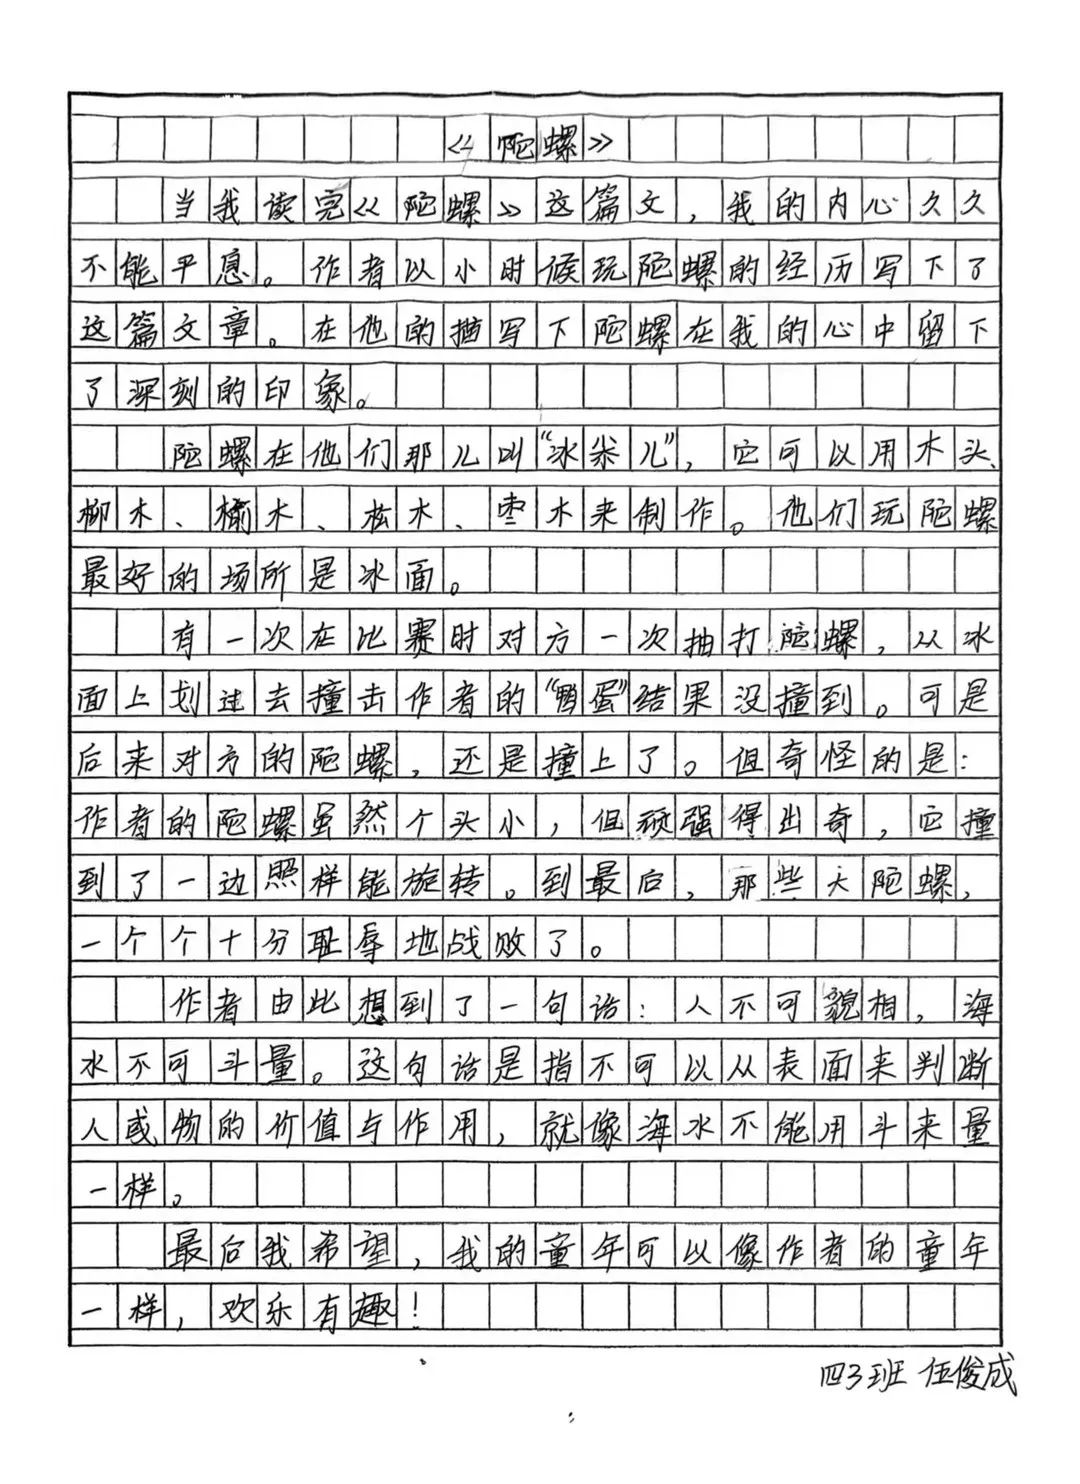 《陀螺》
当我读完《陀螺》这篇文，我的内心久久
不能平息。作者以小时候玩陀螺的经历写下了
这篇文章。在他的描写下陀螺在我的心中留下
了深刻的印象。
陀螺在他们那儿叫“冰尜儿”，它可以用木头、
柳木、榆木、松木、枣木来制作。他们玩陀螺
最好的场所是冰面。
有一次在比赛时对方一次抽打陀螺，从冰
面上划过去撞击作者的“鸭蛋”结果没撞到。可是
后来对方的陀螺，还是撞上了。但奇怪的是：
作者的陀螺虽然个头小，但顽强得出奇，它撞
到了一边照样能旋转。到最后，那些大陀螺，
一个个十分耻辱地战败了。
作者由此想到了一句话：人不可貌相，海
水不可斗量。这句话是指不可以从表面来判断
人或物的价值与作用，就像海水不能用斗来量
一样。
最后我希望，我的童年可以像作者的童年
一样，欢乐有趣！
四3班 伍俊成